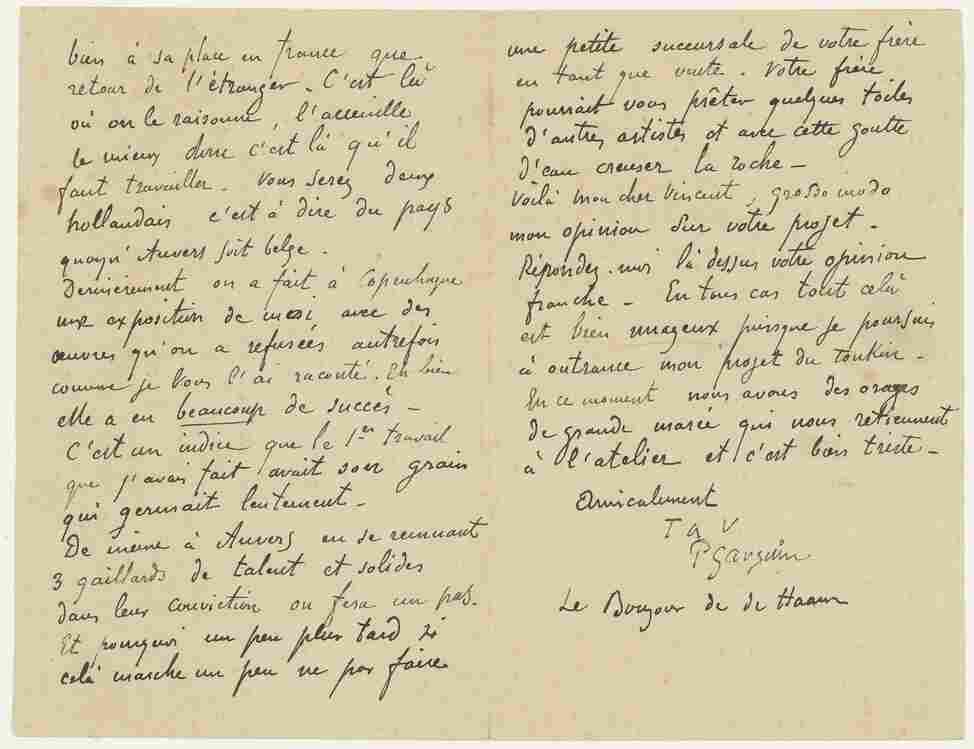 bien à sa place en france que
retour de l'étranger. C'est là
où on le raisonne, l'acceuille
le mieux donc c'est là qu'il
faut travailler. Vous serez deux
hollandais c'est à dire du pays
quoiqu'Anvers soit belge.
Dernièrement on a fait à Copenhague
une exposition de moi avec des
œuvres qu'on a refusées autrefois
comme je vous l'ai raconté. Eh bien
elle a eu beaucoup de succès -
C'est un indice que le 1er travail
que j'avais fait avait son grain
qui germait lentement -
De même à Anvers en se remuant
3 gaillards de talent et solides
dans leur conviction on fera un pas.
Et pourquoi un peu plus tard si
celà marche un peu ne pas faire
une petite succursale de votre frère
en tant que vente. Votre frère
pourrait vous prêter quelques toiles
d'autres artistes et avec cette goutte
d'eau creuser la roche -
Voilà mon cher Vincent, grosso modo
mon opinion sur votre projet -
Répondez-moi là dessus votre opinion
franche - En tous cas tout celà
est bien nuageux puisque je poursuis
à outrance mon projet du Tonkin -
En ce moment nous avons des orages
de grande marée qui nous retiennent
à l'atelier et c'est bien triste -
Amicalement
T a V
P Gauguin
Le Bonjour de de Haan